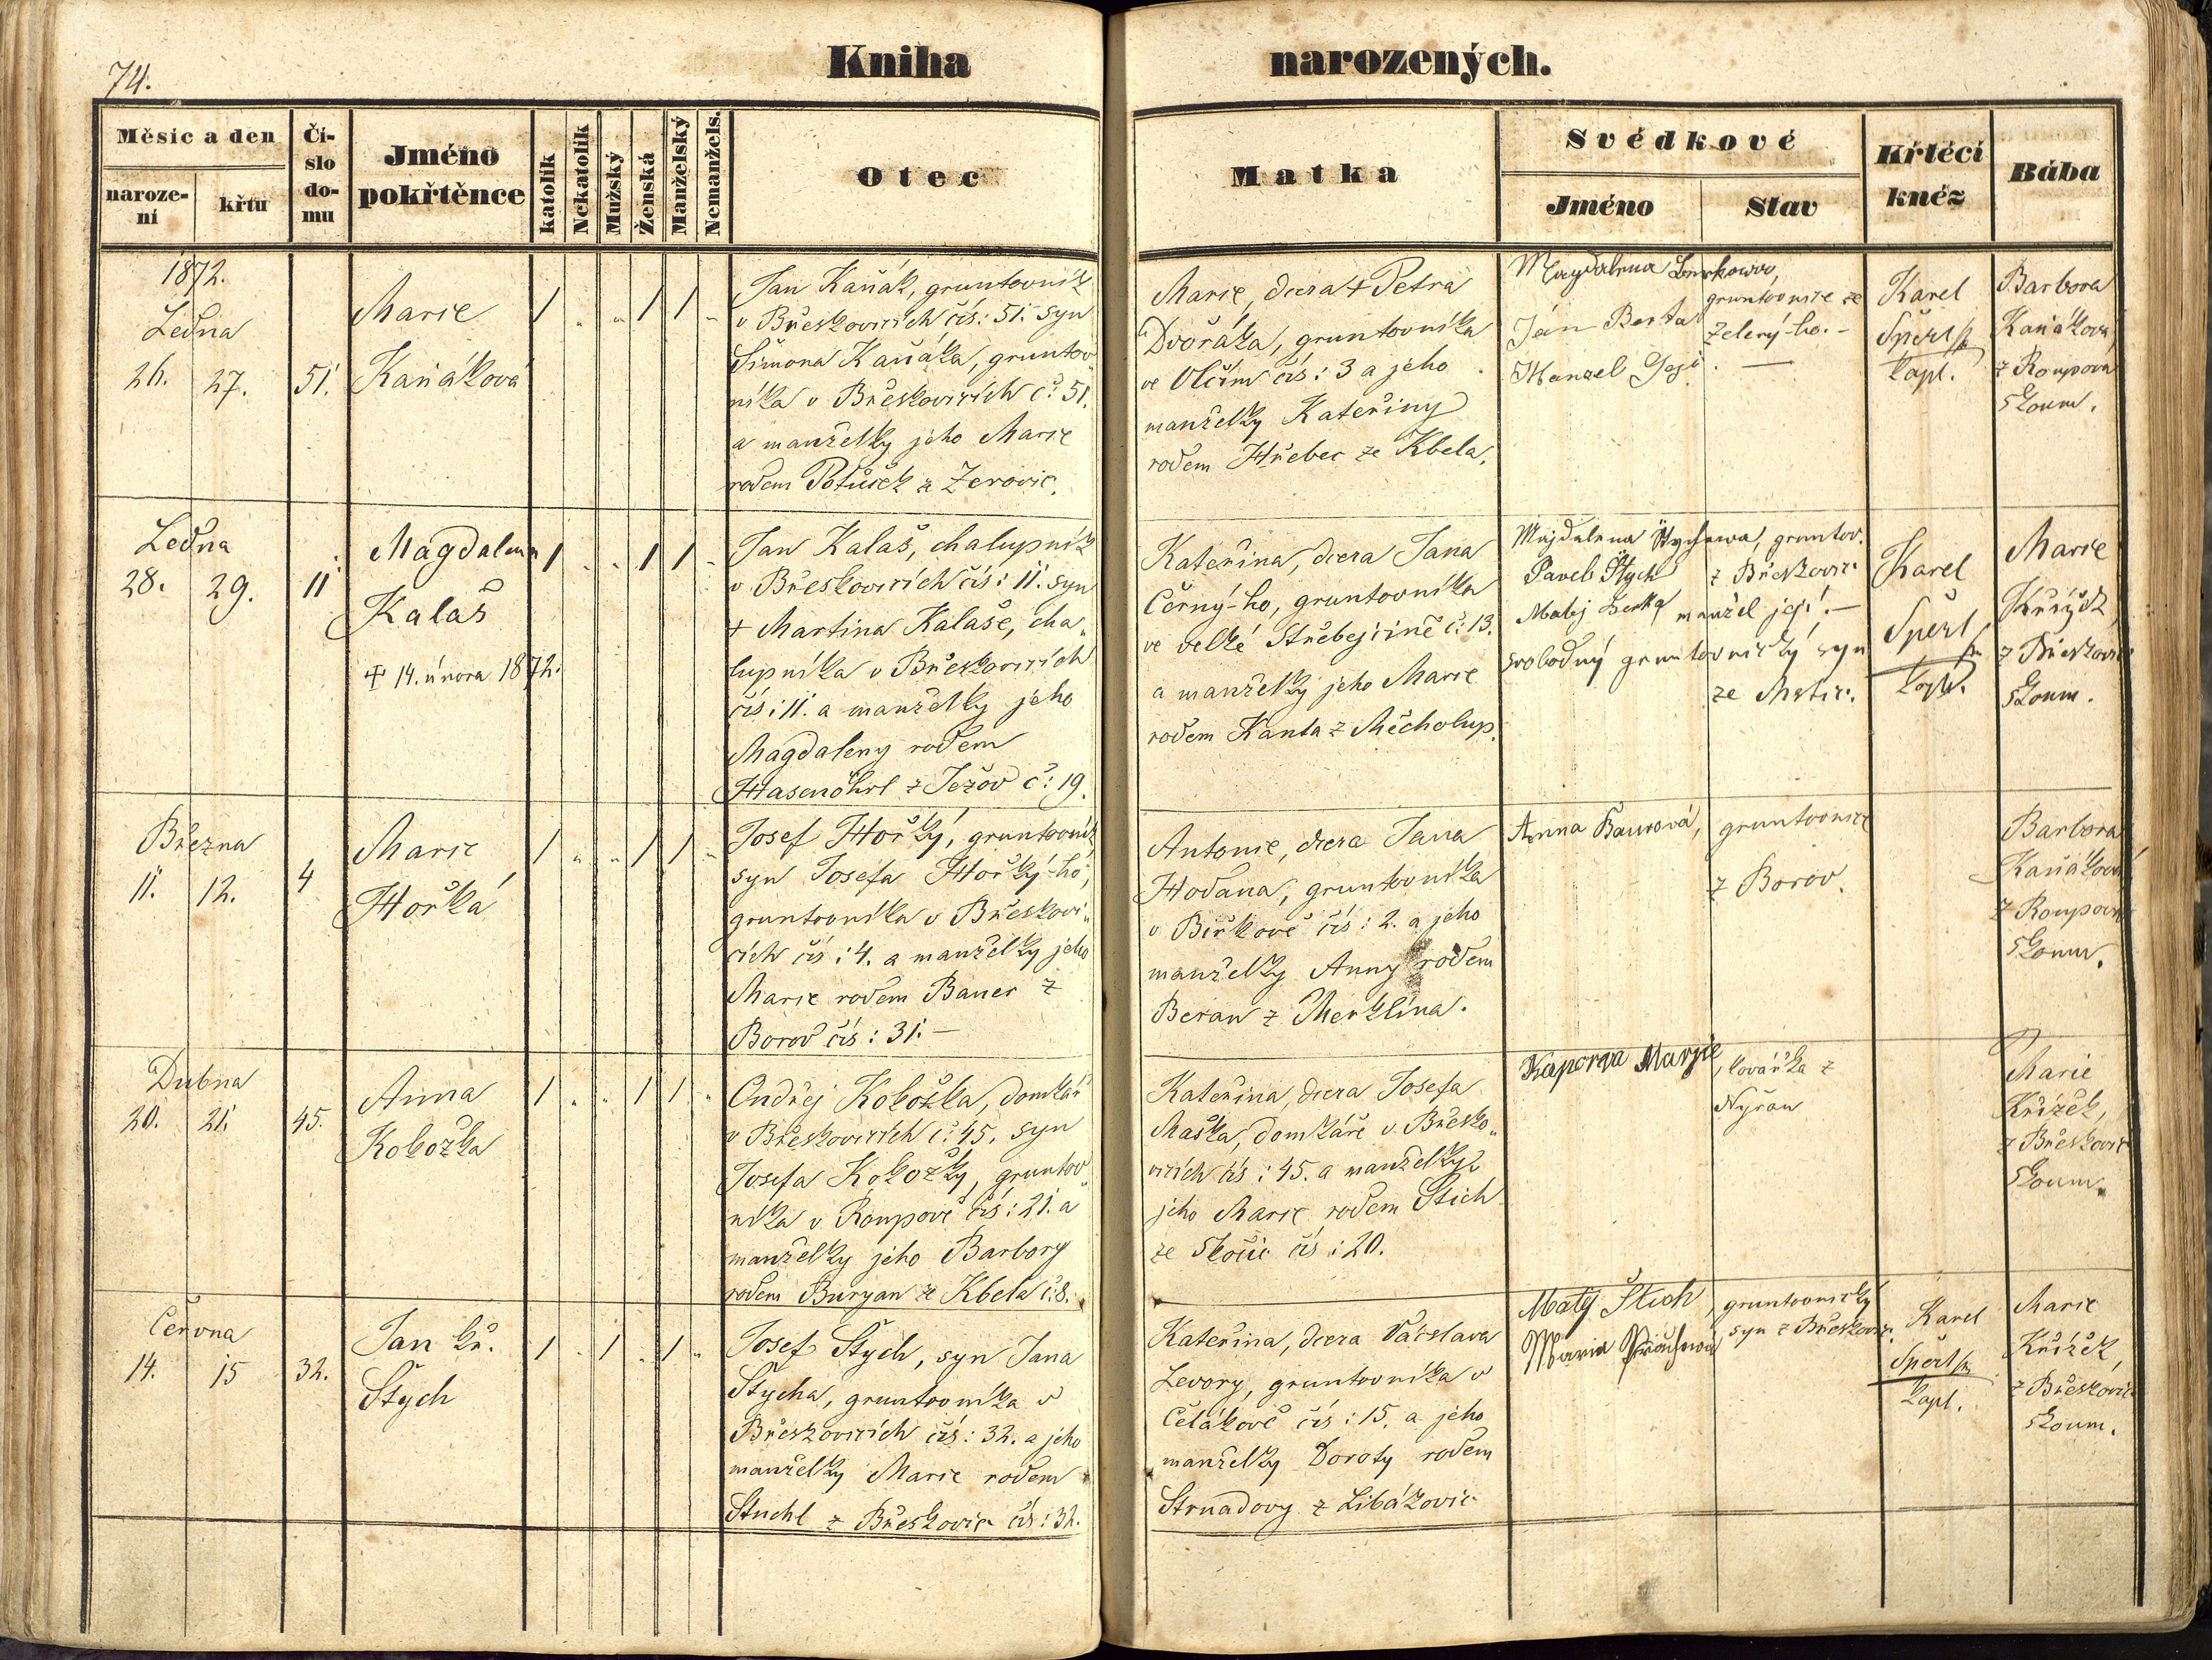 74.
Kniha narozených.
Měsíc a den
naroze-
ní
křtu
Čí-
slo
do-
mu
Jméno
pokřtěnce
katolík
Nekatolík
Mužský
Ženská
Manželský
Nemanžels.
Otec
Matka
Svědkové
Jméno
Stav
Křtěcí
kněz
Bába
1872.
Ledna
26. 27. 51.
Marie
Kaňáková
Jan Kaňák, gruntovník
v Břeskovicích čís: 51. syn
Šimona Kaňáka, gruntov„
níka v Břeskovicích č: 51.
a manželky jeho Marie
rodem Potůček z Žerovic.
Marie, dcera + Petra
Dvořáka, gruntovníka
ve Vlčím čís: 3 a jeho
manželky Kateřiny
rodem Hřebec ze Kbela.
Magdalena
gruntovnice ze
Jan Berta
Zelený-ho.-
Karel
Šperl
kapl.
Barbora
Kaňáková
z Roupova
zkoum.
Ledna
28. 29. 11
Magdalena
Kalaš
+ 14. února 1872.
Jan Kalaš, chalupník
v Břeskovicích čís: 11. syn
+ Martina Kalaše, cha„
lupníka v Břeskovicích
čís: 11. a manželky jeho
Magdaleny rodem
Hasenöhrl z Ježov č: 19.
Kateřina, dcera Jana
Černý-ho, gruntovníka
ve velké Střebejčině č: 13.
a manželky jeho Marie
rodem Kanta z Měcholup.
Majdalena Štychowa, gruntov.
Paveb Štych z Břeskovic
Matěj manžel její.-
svobodný gruntovnický syn
ze Mstic.
Karel
Šperl
kapl.
Marie
Křížek
z Břeskovic
zkoum.
Března
11. 12. 4
Marie
Hořká
Josef Hořký, gruntovník
syn Josefa Hořký-ho,
gruntovníka v Břeskovi„
cích čís: 4. a manželky jeho
Marie rodem Bauer z
Borov čís: 31.-
Antonie, dcera Jana
Hodana, gruntovníka
v Biřkově čís: 2. a jeho
manželky Anny rodem
Beran z Merklína.
Anna Baurová, gruntovnice
z Borov.
Barbora
Kaňáková
z Roupova
zkoum.
Dubna
20. 21. 45.
Anna
Kokožka
Ondřej Kokožka, domkář
v Břeskovicích č: 45, syn
Josefa Kokožky, gruntov„
níka v Roupově čís: 21. a
manželky jeho Barbory
rodem Buryan ze Kbela č: 8.
Kateřina, dcera Josefa
Maška, domkáře v Břesko„
vicích čís: 45. a manželky
jeho Marie rodem Štich
ze Skočic čís: 20.
Kaporqa Marjie, kovářka z
Nyřan
Marie
Křížek,
z Břeskovic
zkoum.
Června
14. 15 32.
Jan kř.
Štych
Josef Štych, syn Jana
Štycha, gruntovníka v
Břeskovicích čís: 32. a jeho
manželky Marie rodem
Stuchl z Břeskovic čís: 32.
Kateřina, dcera Václava
Levory, gruntovníka v
Čelákově čís: 15. a jeho
manželky Doroty rodem
Strnadovy z Libákovic
Matĕj Štich, gruntovnický
syn z Břeskovic.
Maria
Karel
Šperl
kapl.
Marie
Křížek
z Břeskovic
zkoum.